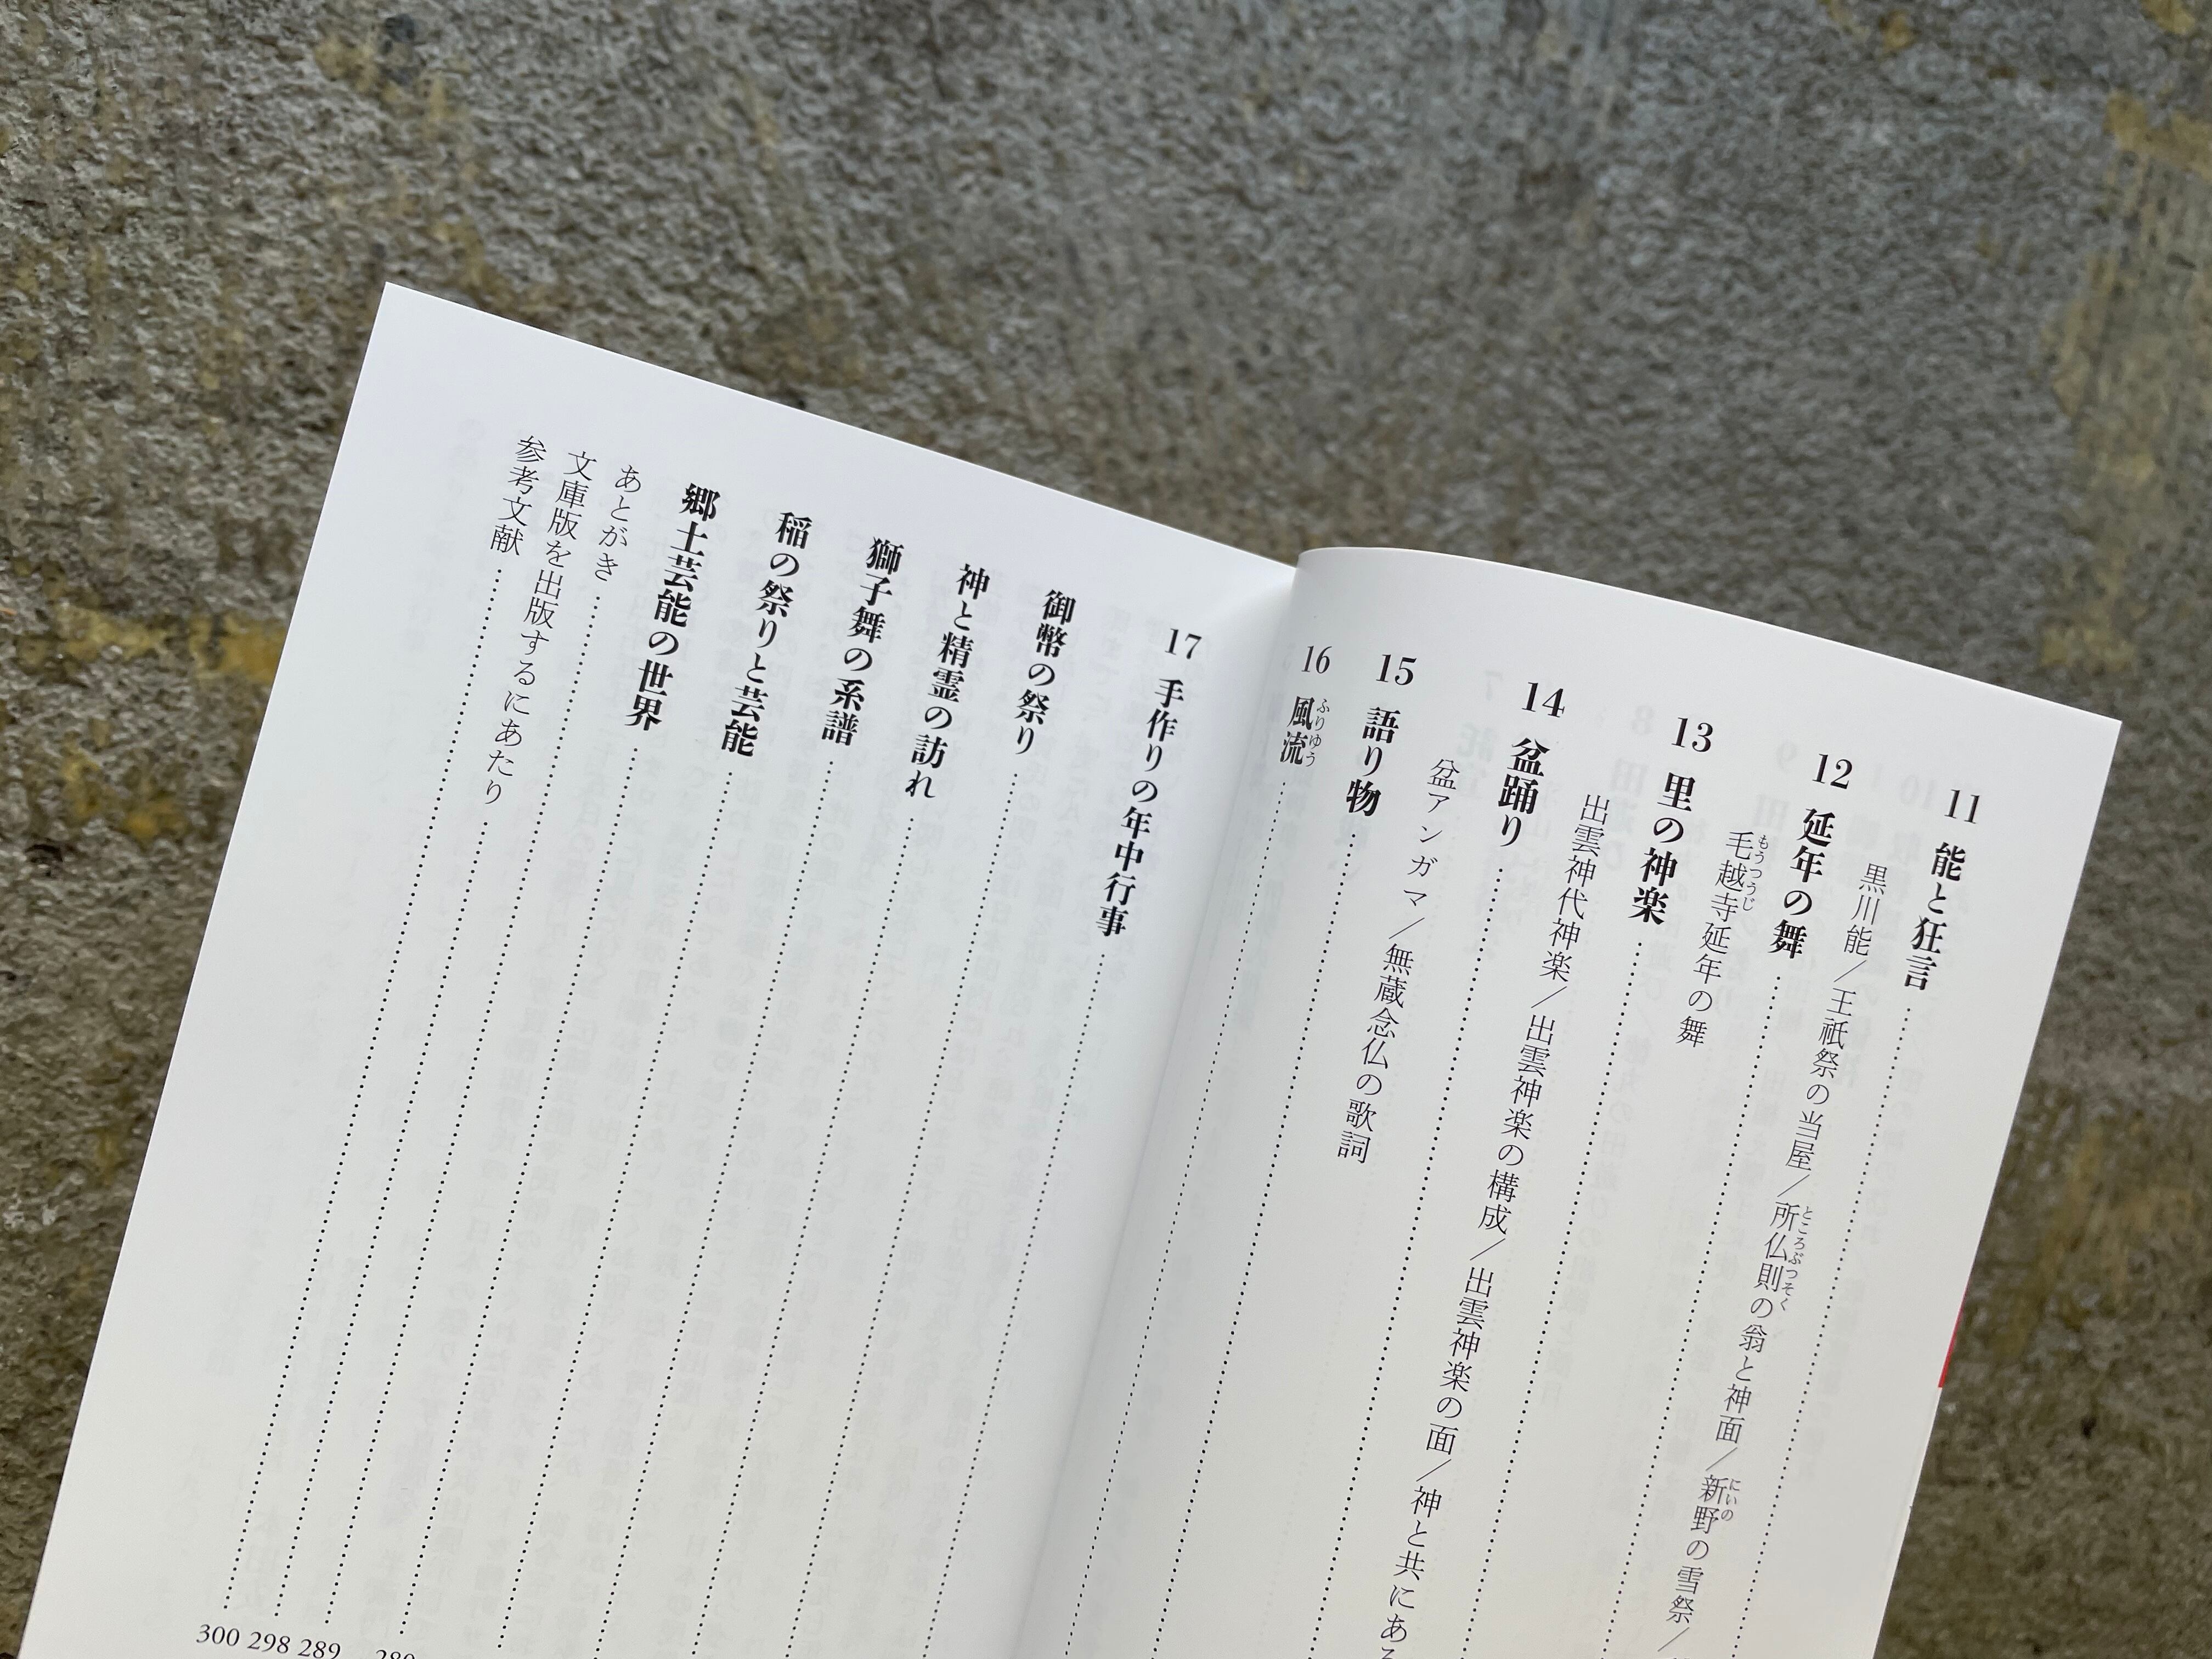 11 能と狂言
黒川能／王祇祭の当屋／所仏則の翁と神面／新野の雪祭／
12 延年の舞
毛越寺延年の舞
13 里の神楽
出雲神代神楽／出雲神楽の構成／出雲神楽の面／神と共にある
14 盆踊り
盆アンガマ／無蔵念仏の歌詞
15 語り物
16 風流
17 手作りの年中行事
御幣の祭り
神と精霊の訪れ
獅子舞の系譜
稲の祭りと芸能
郷土芸能の世界 280
あとがき 289
文庫版を出版するにあたり 298
参考文献 300